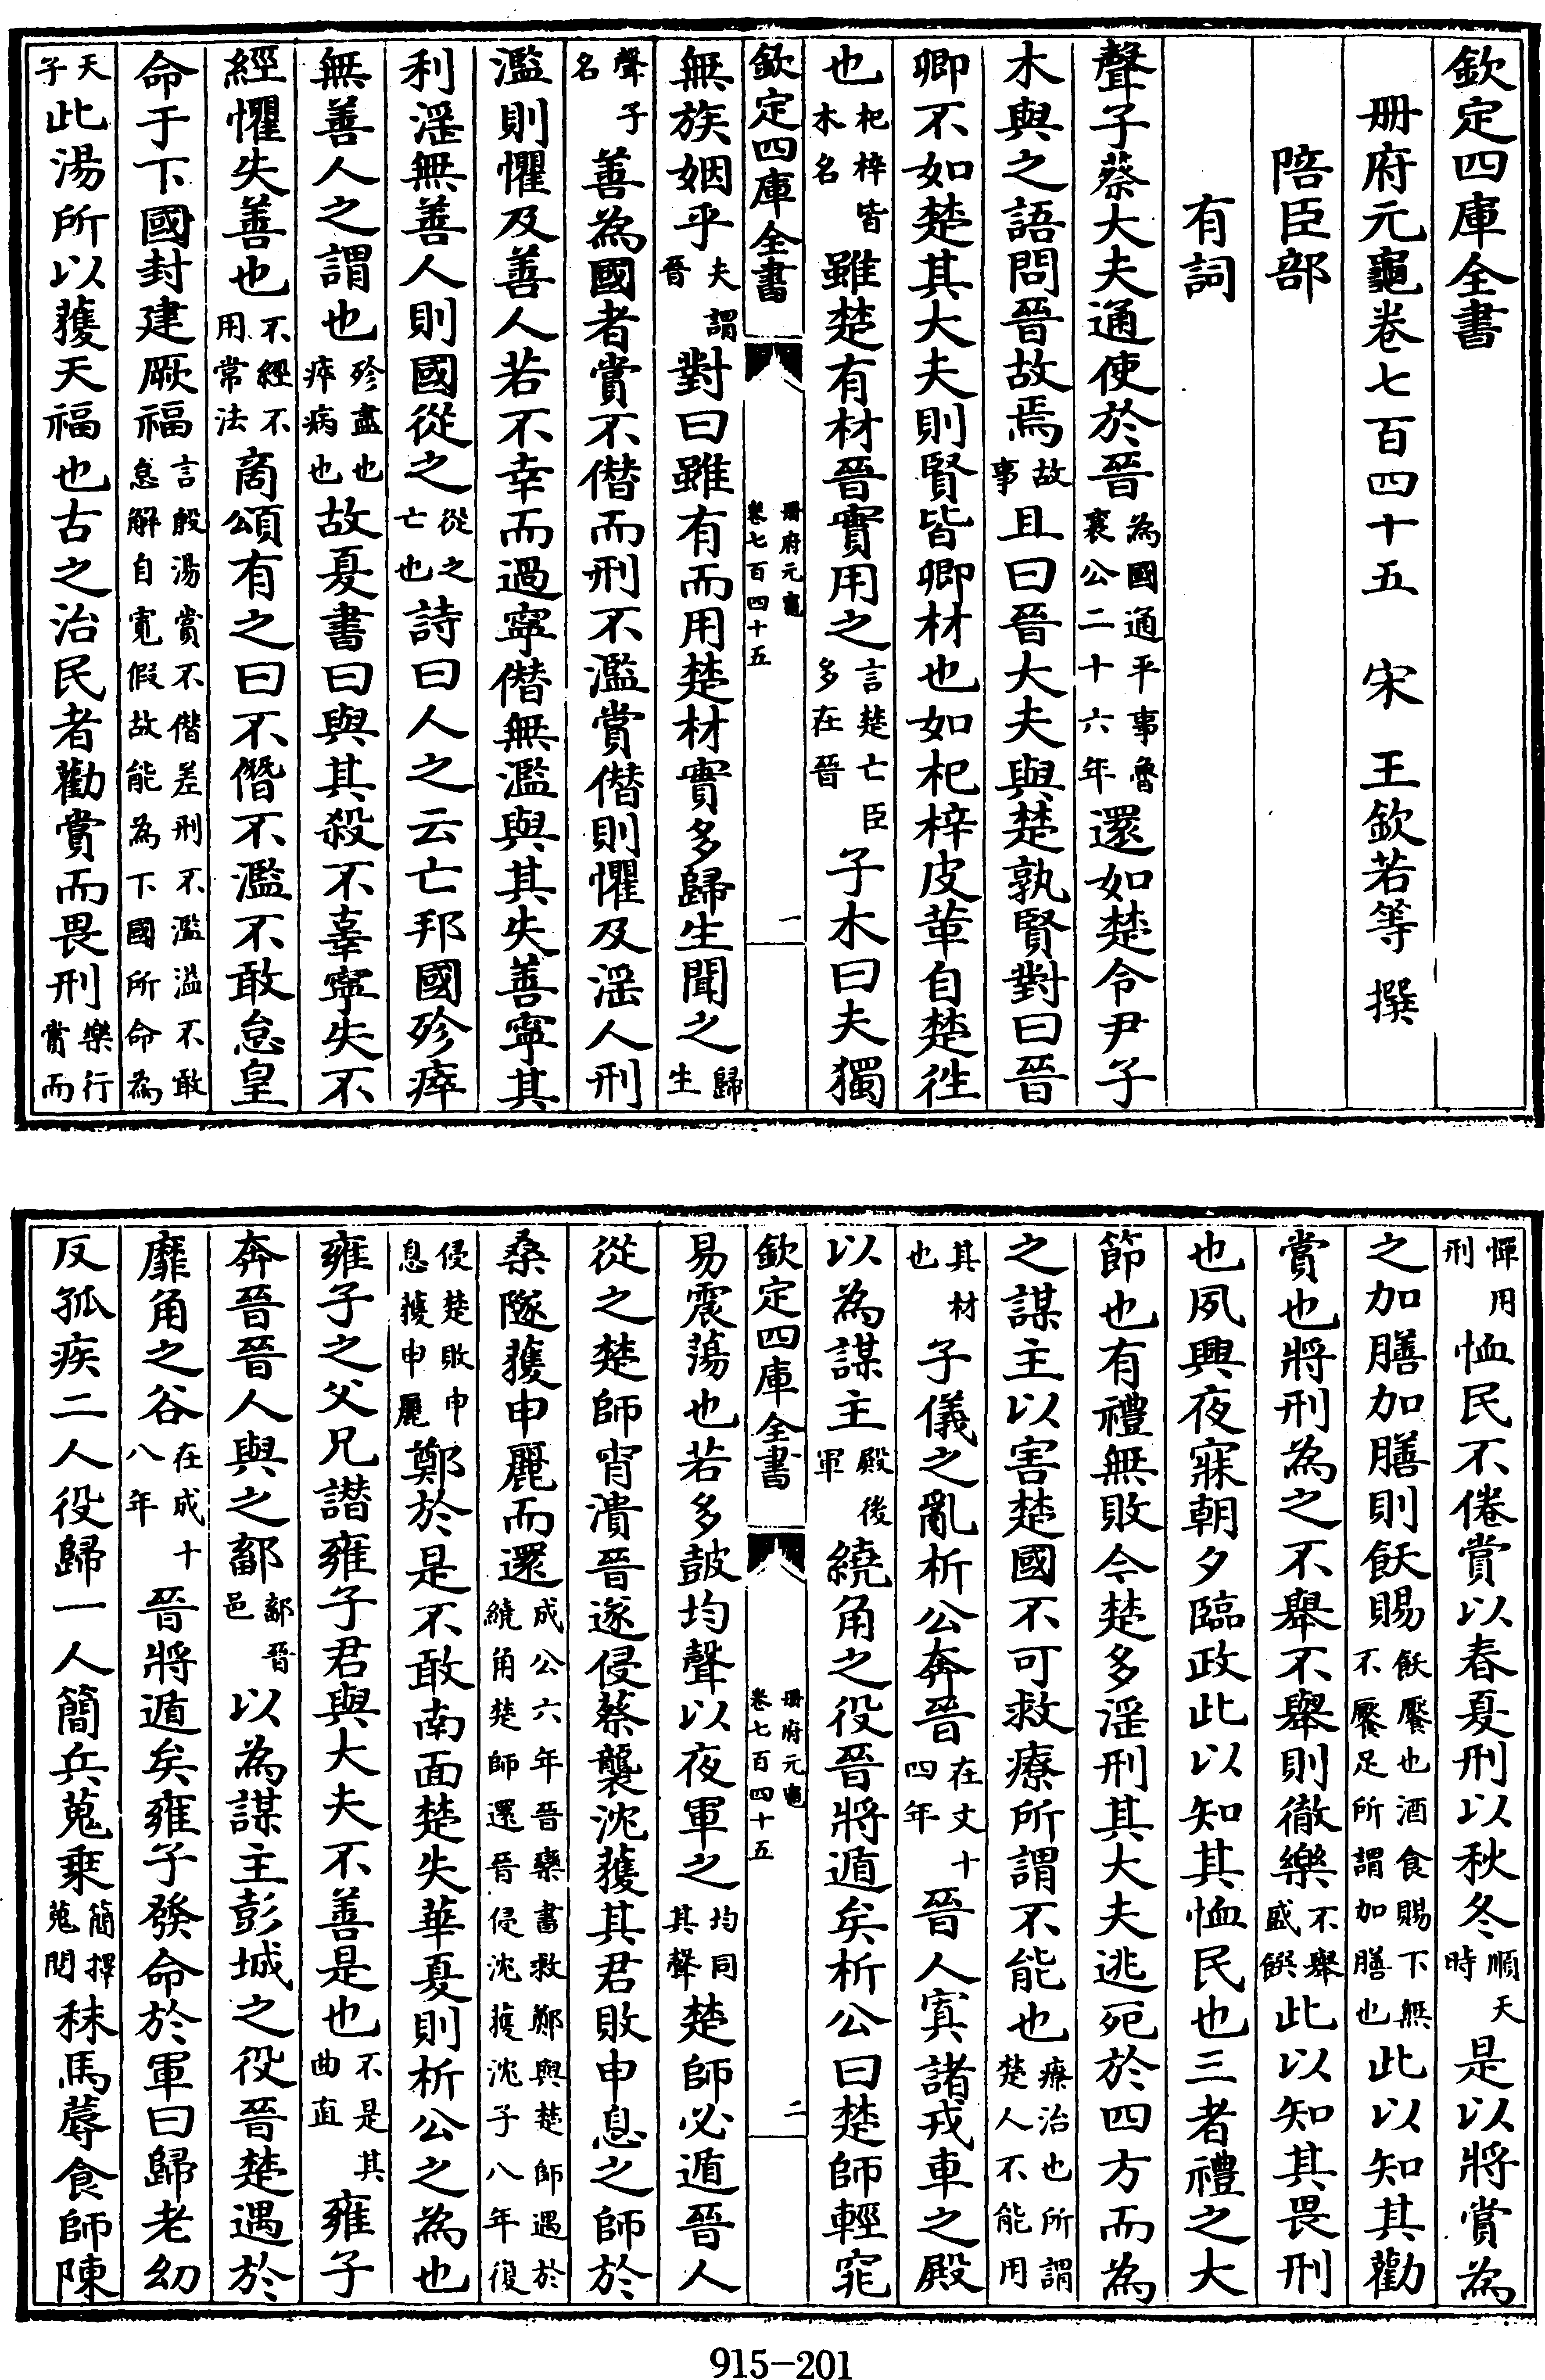 欽定四庫全書
册府元龜卷七百四十五　宋　王欽若等　撰
陪臣部
有詞
聲子蔡大夫通使於晉為國通平事魯襄公二十六年還如楚令尹子
木與之語問晉故焉故事且曰晉大夫與楚孰賢對曰晉
卿不如楚其大夫則賢皆卿材也如杞梓皮革自楚徃
也杞梓皆木名雖楚有材晉實用之言楚亡臣多在晉子木曰夫獨
欽定四庫全書　册府元龜卷七百四十五　一
無族姻乎夫謂晉對曰雖有而用楚材實多歸生聞之歸生
聲子名善為國者賞不僭而刑不濫賞僭則懼及淫人刑
濫則懼及善人若不幸而過寧僭無濫與其失善寧其
利淫無善人則國從之從之亡也詩曰人之云亡邦國殄瘁
無善人之謂也殄盡也瘁病也故夏書曰與其殺不辜寧失不
經懼失善也不經不用常法商頌有之曰不僭不濫不敢怠皇
命于下國封建厥福言殷湯賞不僭差刑不濫溢不敢怠解自寛假故能為下國所命為
天子此湯所以獲天福也古之治民者勸賞而畏刑樂行賞而
憚用刑恤民不倦賞以春夏刑以秋冬順天時是以將賞為
之加膳加膳則飫賜飫饜也酒食賜下無不饜足所謂加膳也此以知其勸
賞也將刑為之不舉不舉則徹樂不舉盛饌此以知其畏刑
也夙興夜寐朝夕臨政此以知其恤民也三者禮之大
節也有禮無敗今楚多淫刑其大夫逃死於四方而為
之謀主以害楚國不可救療所謂不能也療治也所謂楚人不能用
其材也子儀之亂析公奔晉在文十四年晉人寘諸戎車之殿
以為謀主殿後軍繞角之役晉將遁矣析公曰楚師輕窕
欽定四庫全書　册府元龜卷七百四十五　二
易震蕩也若多鼓均聲以夜軍之均同其聲楚師必遁晉人
從之楚師宵潰晉遂侵蔡襲沈獲其君敗申息之師於
桑隧獲申麗而還成公六年晉欒書救鄭與楚師遇於繞角楚師還晉侵沈獲沈子八年復
侵楚敗申息獲申麗鄭於是不敢南面楚失華夏則析公之為也
雍子之父兄譖雍子君與大夫不善是也不是其曲直雍子
奔晉晉人與之鄐鄐晉邑以為謀主彭城之役晉楚遇於
靡角之谷在成十八年晉將遁矣雍子發命於軍曰歸老幼
反孤疾二人役歸一人簡兵蒐乗簡擇蒐閲秣馬蓐食師陳
915-201